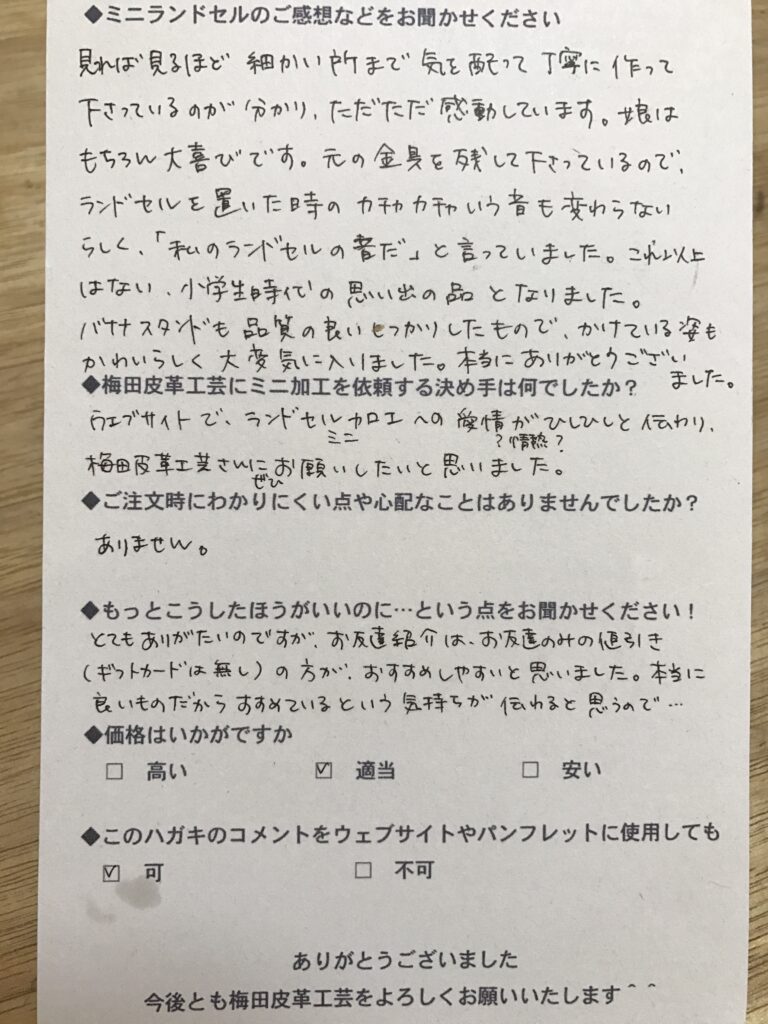 ◆ミニランドセルのご感想などをお聞かせください
見れば見るほど 細かい所まで 気を配って 丁寧に 作って
下さっているのが 分かり、ただただ 感動しています。娘は
もちろん大喜びです。元の金具を残して下さっているので、
ランドセルを置いた時の カチャカチャいう音も変わらない
らしく、「私のランドセルの音だ」と言っていました。これ以上
はない、小学生時代の思い出の品 となりました。
バナナスタンドも品質の良いしっかりしたもので、かけている姿も
かわいらしく 大変気に入りました。本当にありがとうござい
ました。
◆梅田皮革工芸にミニ加工を依頼する決め手は何でしたか？
ウェブサイトで、ランドセル加工への愛情がひしひしと伝わり、
ミニ ？情熱？
梅田皮革工芸さんにお願いしたいと思いました。
ぜひ
◆ご注文時にわかりにくい点や心配なことはありませんでしたか？
ありません。
◆もっとこうしたほうがいいのに…という点をお聞かせください！
とてもありがたいのですが、お友達紹介は、お友達のみの値引き
(ギフトカードは無し)の方が、おすすめしやすいと思いました。本当に
良いものだからすすめているという気持ちが伝わると思うので…
◆価格はいかがですか
☐ 高い ☑ 適当 ☐ 安い
◆このハガキのコメントをウェブサイトやパンフレットに使用しても
☑ 可 ☐ 不可
ありがとうございました
今後とも梅田皮革工芸をよろしくお願いいたします＾＾